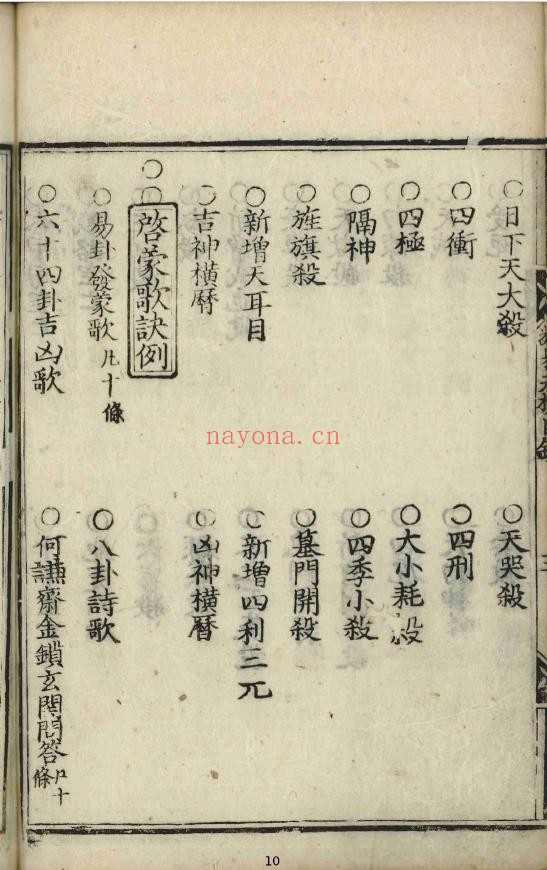 ○日下天大殺 ○天哭殺
○四衝 ○四刑
○四極 ○大小耗殺
○隔神 ○四季小殺
○旌旗殺 ○墓門開殺
○新增天耳目 ○新增四利三元
○吉神橫曆 ○凶神橫曆
○○啓蒙歌訣例
○易卦發蒙歌凡十條 ○八卦詩歌
○六十四卦吉凶歌 ○何謙齋金鎖玄関問答凡十條
nayona.cn
10